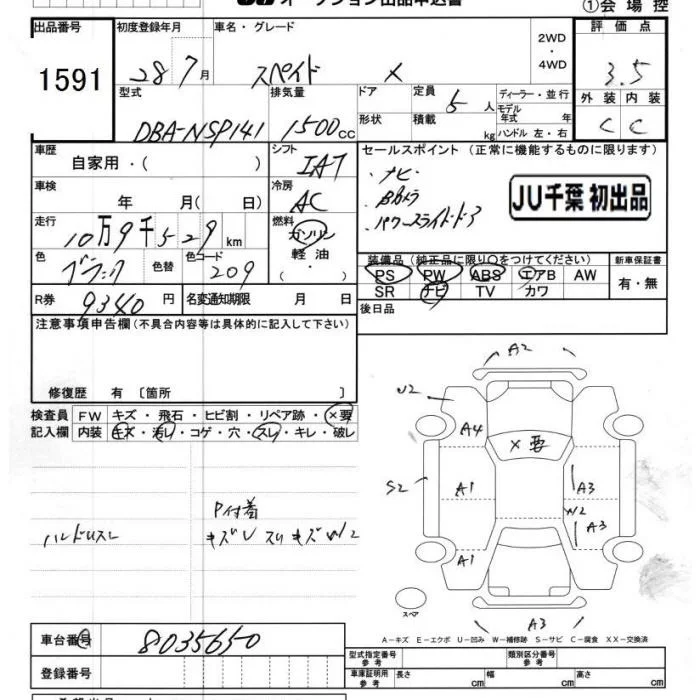 オークション出品申込書
①会場控
出品番号 初度登録年月 車名・グレード 2WD・4WD 評価点
1591 28 7月 スペイド X 3.5
型式 排気量 ドア 定員 5人 ディーラー・並行 外装 内装
DBA-NSP141 1500cc 形状 積載 kg モデル年式 年 ハンドル 左・右 C C
車歴 自家用・( ) シフト IAT セールスポイント (正常に機能するものに限ります)
車検 年 月( 日) 冷房 AC ・ナビ
・Bカメラ
・パワースライドドア
JU千葉 初出品
走行 10万9千529km 燃料 ガソリン・軽油・
色 ブラック 色替 色コード 209
装備品 (純正品に限り○をつけてください) 新車保証書
PS PW ABS エアB AW 有・無
SR ナビ TV カワ
R券 9340円 名変通知期限 月 日 後日品
注意事項申告欄(不具合内容等は具体的に記入して下さい)
修復歴 有〔箇所 〕
検査員 FW キズ・飛石・ヒビ割・リペア跡・×要
記入欄 内装 キズ・汚レ・コゲ・穴・スレ・キレ・破レ
ハンドルスレ
P付着
キズU スリキズ W2
A2
U2
A4
X要
S2
A1
A3
W2
A3
A1
スペア
A3
A-キズ E-エクボ U-凹み W-補修跡 S-サビ C-腐食 XX-交換済
車台番号 8035650
型式指定番号 参考 類別区分番号 参考
登録番号 車庫証明用 参考 長さ cm 幅 cm 高さ cm